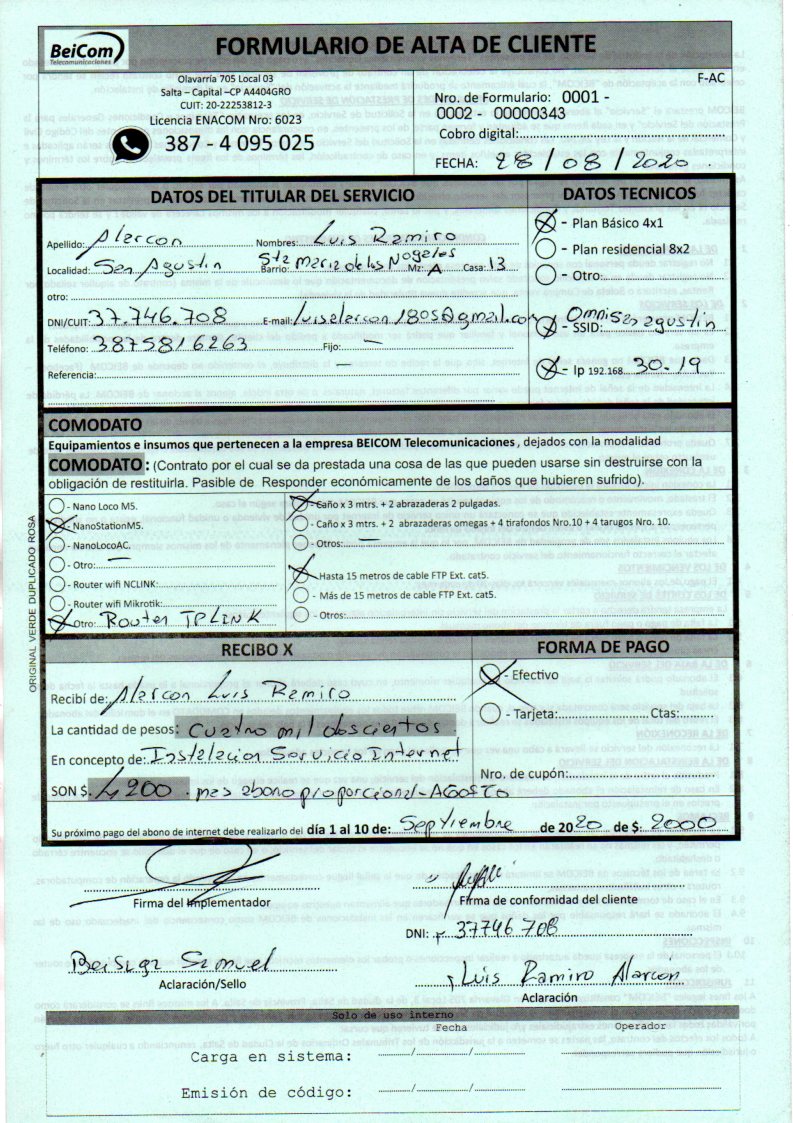 BeiCom
Telecomunicaciones
FORMULARIO DE ALTA DE CLIENTE
Olavarría 705 Local 03
Salta – Capital –CP A4404GRO
CUIT: 20-22253812-3
Licencia ENACOM Nro: 6023
387 - 4 095 025
F-AC
Nro. de Formulario: 0001 -
0002 - 00000343
Cobro digital:
FECHA: 28 / 08 / 2020
DATOS DEL TITULAR DEL SERVICIO
Apellido: Alarcon Nombres: Luis Ramiro
Localidad: San Agustin Barrio: Sta Maria de los Nogales Mz: A Casa: 13
otro:
DNI/CUIT: 37.746.708 E-mail: luisalarcon1805@gmail.com
Teléfono: 3875816263 Fijo: —
Referencia: —
DATOS TECNICOS
- Plan Básico 4x1
- Plan residencial 8x2
- Otro:
- SSID: Omni San agustin
- Ip 192.168. 30.19
COMODATO
Equipamientos e insumos que pertenecen a la empresa BEICOM Telecomunicaciones, dejados con la modalidad
COMODATO: (Contrato por el cual se da prestada una cosa de las que pueden usarse sin destruirse con la
obligación de restituirla. Pasible de Responder económicamente de los daños que hubieren sufrido).
- Nano Loco M5.
- NanoStationM5.
- NanoLocoAC.
- Otro: —
- Router wifi NCLINK:
- Router wifi Mikrotik:
- Otro: Router TPLINK
- Caño x 3 mtrs. + 2 abrazaderas 2 pulgadas.
- Caño x 3 mtrs. + 2 abrazaderas omegas + 4 tirafondos Nro.10 + 4 tarugos Nro. 10.
- Otros: —
- Hasta 15 metros de cable FTP Ext. cat5.
- Más de 15 metros de cable FTP Ext. cat5.
- Otros:
ORIGINAL VERDE DUPLICADO ROSA
RECIBO X
Recibí de: Alarcon Luis Ramiro
La cantidad de pesos: Cuatro mil doscientos
En concepto de: Instalacion Servicio Internet
SON $. 4200 . mes abono proporcional - AGOSTO
FORMA DE PAGO
- Efectivo
- Tarjeta: Ctas:
Nro. de cupón:
Su próximo pago del abono de internet debe realizarlo del día 1 al 10 de: Septiembre de 2020 de $: 2000
Firma del Implementador
Firma de conformidad del cliente
DNI: 37746708
Samuel
Aclaración/Sello
Luis Ramiro Alarcón
Aclaración
Solo de uso interno
Fecha Operador
Carga en sistema: / /
Emisión de código: / /